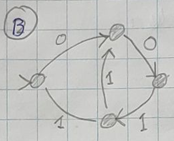 B
0
0
1
1
1